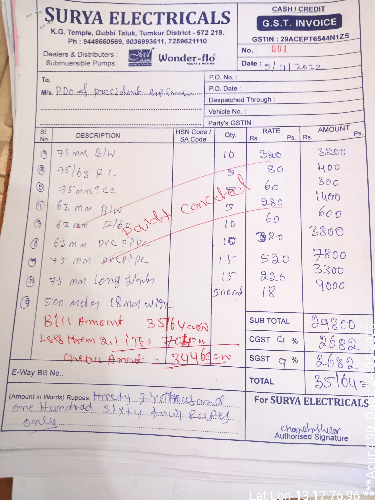 SURYA ELECTRICALS
K.G. Temple, Gubbi Taluk, Tumkur District - 572 219.
Ph : 9448660569, 9036993611, 7259621110
Dealers & Distributors :
Submuersible Pumps
Wonder-flo
CASH / CREDIT
G.S.T. INVOICE
GSTIN : 29ACEPT6544N1ZS
No. 001
Date :
To,
M/s. PDO
P.O. No. :
P.O. Date :
Despatched Through :
Vehicle No. :
Party's GSTIN
Sl. No. DESCRIPTION HSN Code / SA Code Qty. RATE Rs. Ps. AMOUNT Rs. Ps.
75mm B/W 10 320 3200
75/63 R.C 5 80 400
75mm Tee 5 60 300
63mm B/W 5 280 1400
63mm 10 60 600
63mm PVC Pipe 10 380 3800
75 mm PVC Pipe 15 520 7800
75 mm Long 15 220 3300
500 meter 18mm 500 18 9000
Paid & Canceled
Bill Amount 35164=00
Less
Cheque Amount
SUB TOTAL 29800
CGST 9 % 2682
SGST 9 % 2682
TOTAL 35164
E-Way Bill No.
(Amount in Words) Rupees Thirty five thousand
one Hundred sixty four Rupees
only
For SURYA ELECTRICALS
Authorised Signature
Lat Lon 13.17,76.96